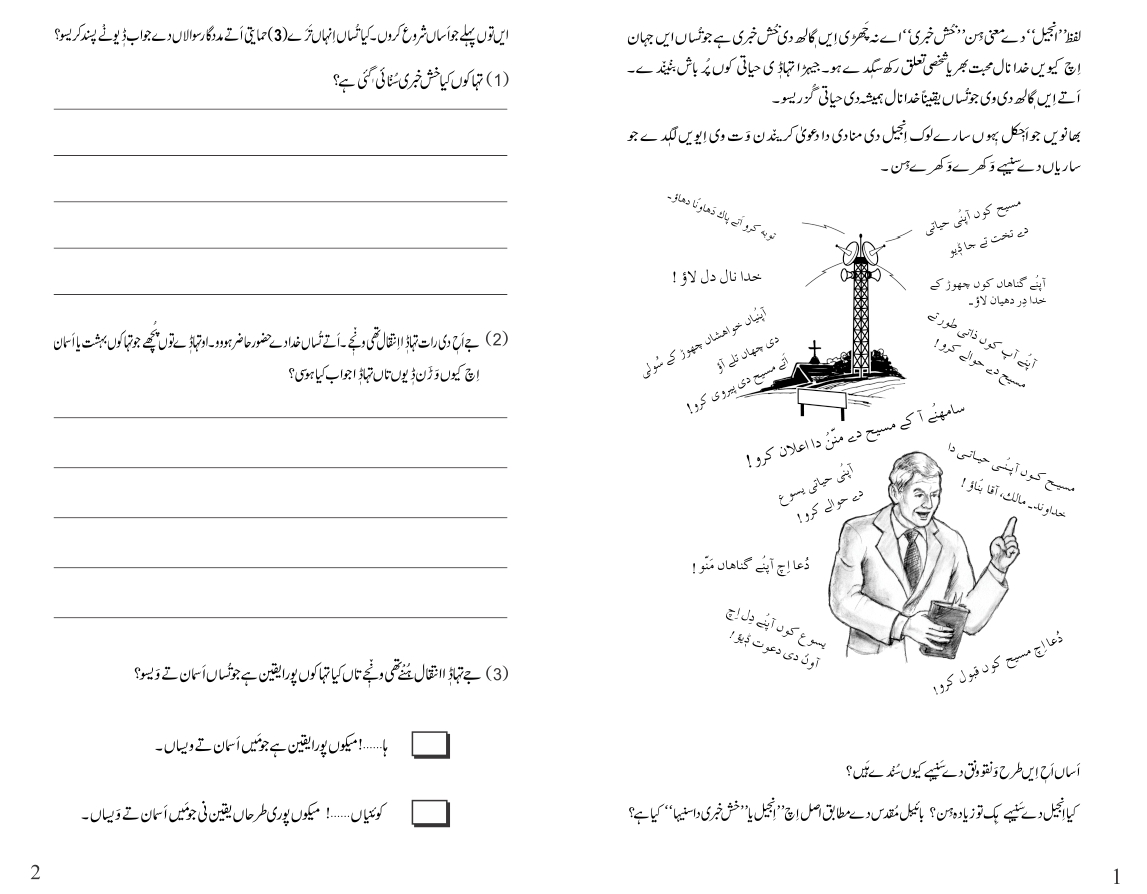 لفظ ’’انجیل‘‘ دے معنی ہِن ’’خُش خبری‘‘ اے نہ چَھڑی اِیں ڳالھ دی خُش خبری ہے جو تُساں ایں جہان
اِچ کیویں خدا نال محبت بھریا شخصی تعلق رکھ سڳدے ہو۔ جیہڑا تہاݙی حیاتی کوں پُر باش بݨیندے۔
اَتے اِیں ڳالھ دی وی جو تُساں یقیناً خدا نال ہمیشہ دی حیاتی گُزریسو۔
بھانویں جو اَڄکل ٻہوں سارے لوک اِنجیل دی منادی دا دعویٰ کریندن وَت وی اِیویں لڳدے جو
ساریاں دے سنیہے وَکھرے وَکھرے ہِن ۔
توبہ کرو اَتے پاک دَھاوݨا دھاؤ۔
مسیح کوں آپݨی حیاتی
دے تخت تے جا ݙیو
خدا نال دل لاؤ !
آپݨے گناھاں کوں چھوڑ کے
خدا دِر دھیان لاؤ۔
آپݨیاں خواھشاں چھوڑ کے سُولی
دی چھاں تلے آؤ
اَتے مسیح دی پیروی کرو!
آپݨے آپ کوں ذاتی طور تے
مسیح دے حوالے کرو!
سامھݨے آ کے مسیح دے منّݨ دا اعلان کرو !
آپݨی حیاتی یسوع
دے حوالے کرو !
مسیح کوں آپݨی حیاتی دا
خداوند۔ مالک، آقا بݨاؤ !
دُعا اِچ آپݨے گناھاں مَنّو !
یسوع کوں آپݨے دِل اِچ
آوݨ دی دعوت ݙیؤ!
دُعا اِچ مسیح کوں قبول کرو!
اَساں اَڄ اِیں طرح وَنقو وَنق دے سَنیہے کیوں سُندے ہَیں ؟
کیا اِنجیل دے سَنیہے ہِک تو زیادہ ہِن ؟ بائیبل مُقدس دے مطابق اصل اِچ ’’اِنجیل یا ’’خُش خبری دا سنیہا‘‘ کیا ہے؟
1
ایں توں پہلے جو اَساں شروع کروں۔ کیا تُساں اِنہاں ترَے (3) حمایتی اَتے مددگار سوالاں دے جواب ݙیوݨے پسند کریسو؟
(1) تہاکوں کیا خُش خبری سُݨائی ڳئی ہے؟
(2) جے اَڄ دی رات تہاݙا انتقال تھی ونڄے ۔ اَتے تُساں خدا دے حضور حاضر ہووو۔ او تہاݙے توں پُچھے جو تہاکوں بہشت یا اَسمان
اِچ کیوں وَڑن ݙیوں تاں تہاݙا جواب کیا ہوسی؟
(3) جے تہاݙا انتقال ہُݨے تھی ونڄے تاں کیا تہاکوں پورا یقین ہے جو تُساں اَسمان تے وَیسو؟
ہا......! میکوں پورا یقین ہے جو مَیں اَسمان تے ویساں ۔
کوئنیاں......! میکوں پوری طرحاں یقین نی جو مَیں اَسمان تے وَیساں ۔
2